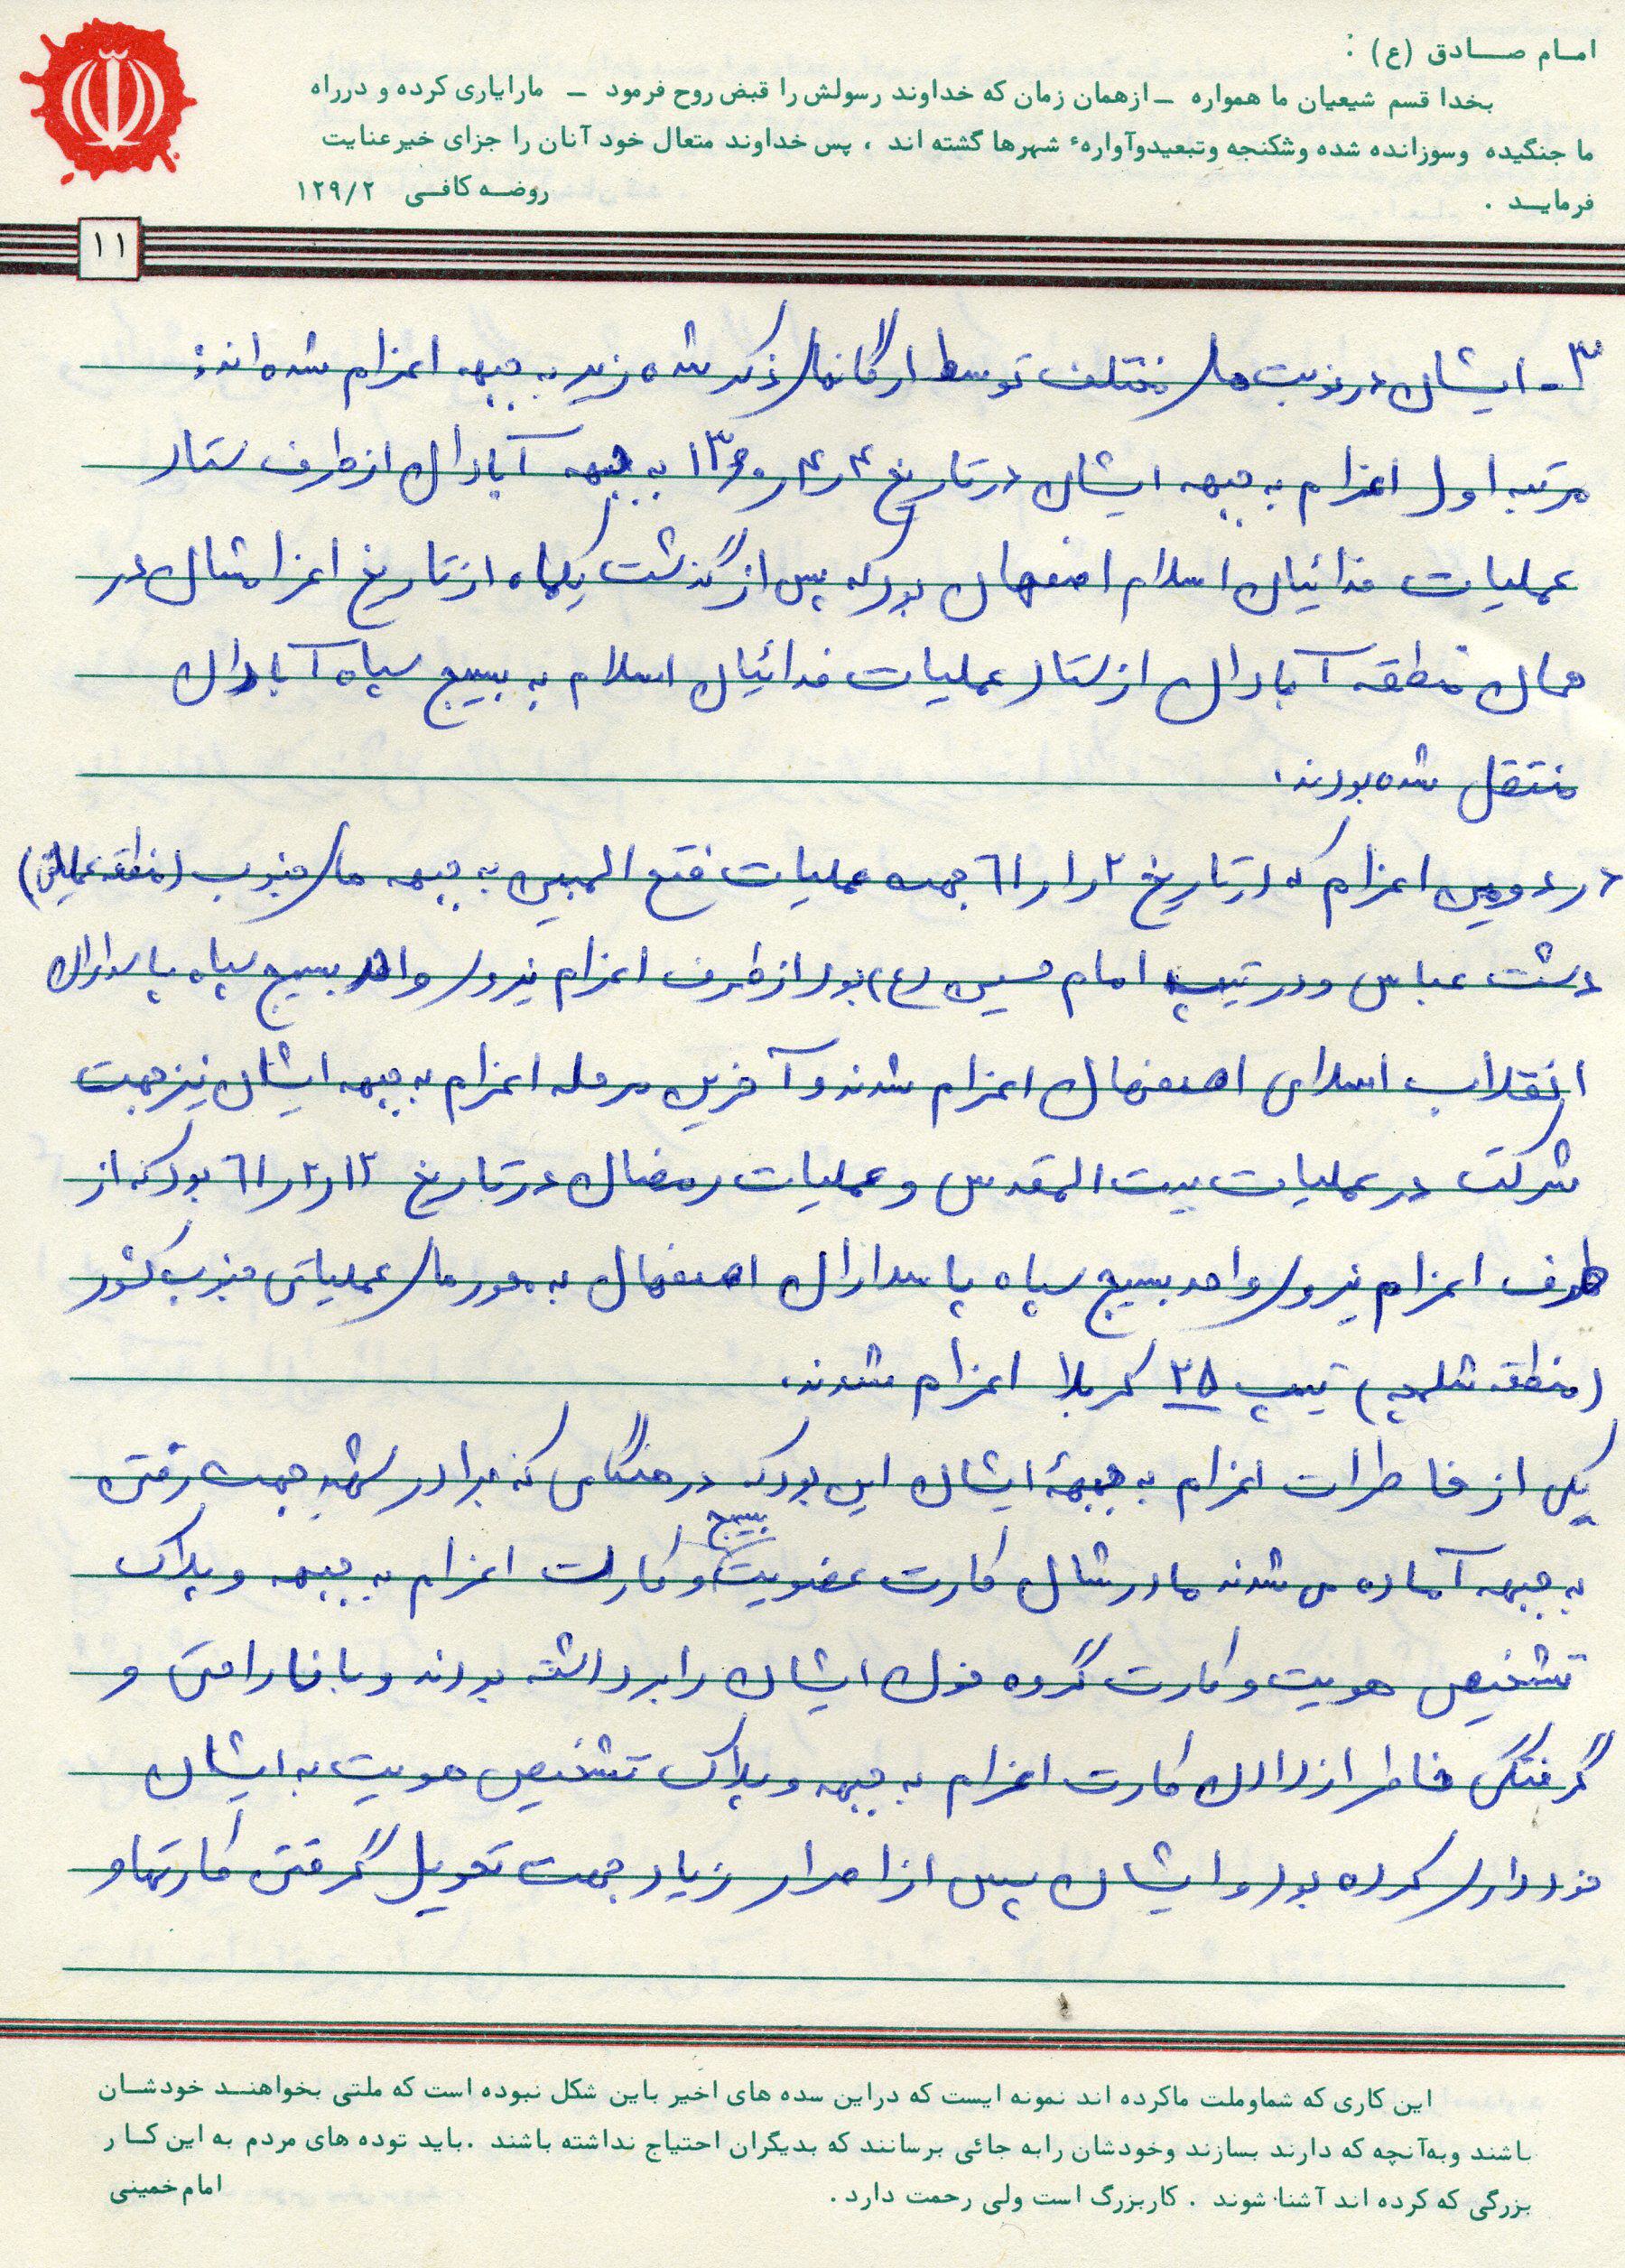 امام صادق (ع) :
بخدا قسم شیعیان ما همواره ـ ازهمان زمان که خداوند رسولش را قبض روح فرمود ـ مارایاری کرده و درراه
ما جنگیده وسوزانده شده وشکنجه وتبعیدوآوارهٔ شهرها گشته اند ، پس خداوند متعال خود آنان را جزای خیرعنایت
فرمایـد .
روضـه کافـی ۱۲۹/۲
۱۱
۳ـ ایشان در نوبت های مختلف توسط ارگانهای ذکر شده زیر به جبهه اعزام شده اند:
مرتبه اول اعزام به جبهه ایشان در تاریخ ۴ر۴ر۱۳۶۰ به جبهه آبادان از طرف ستاد
عملیات فدائیان اسلام اصفهان بود که پس از گذشت یکماه از تاریخ اعزامشان در
همان منطقه آبادان از ستاد عملیات فدائیان اسلام به بسیج سپاه آبادان
منتقل شده بودند.
در دومین اعزام که در تاریخ ۲ر۱ر۶۱ جهت عملیات فتح المبین به جبهه های جنوب (منطقه عملیاتی)
دشت عباس و در تیپ امام حسین (ع) بود از طرف اعزام نیروی واحد بسیج سپاه پاسداران
انقلاب اسلامی اصفهان اعزام شدند و آخرین مرحله اعزام به جبهه ایشان نیز جهت
شرکت در عملیات بیت المقدس و عملیات رمضان در تاریخ ۱۲ر۲ر۶۱ بود که از
طرف اعزام نیروی واحد بسیج سپاه پاسداران اصفهان به محورهای عملیاتی جنوب کشور
(منطقه شلمچه) تیپ ۲۵ کربلا اعزام شدند.
یکی از خاطرات اعزام به جبههٔ ایشان این بود که در هنگامی که برادر شهید جهت رفتن
به جبهه آماده می شدند مادرشان کارت عضویت بسیج و کارت اعزام به جبهه و پلاک
تشخیص هویت و کارت گروه خون ایشان را برداشته بودند و با ناراحتی و
گرفتگی خاطر از دادن کارت اعزام به جبهه و پلاک تشخیص هویت به ایشان
خودداری کرده بود و ایشان پس از اصرار زیاد جهت تحویل گرفتن کارتها و
این کاری که شماوملت ماکرده اند نمونه ایست که دراین سده های اخیر باین شکل نبوده است که ملتی بخواهنـد خودشـان
باشند وبه‌آنچه که دارند بسازند وخودشان رابه جائی برسانند که بدیگران احتیاج نداشته باشند . باید توده های مردم به این کـا ر
بزرگی که کرده اند آشنا شوند . کاربزرگ است ولی رحمت دارد .
امام خمینی